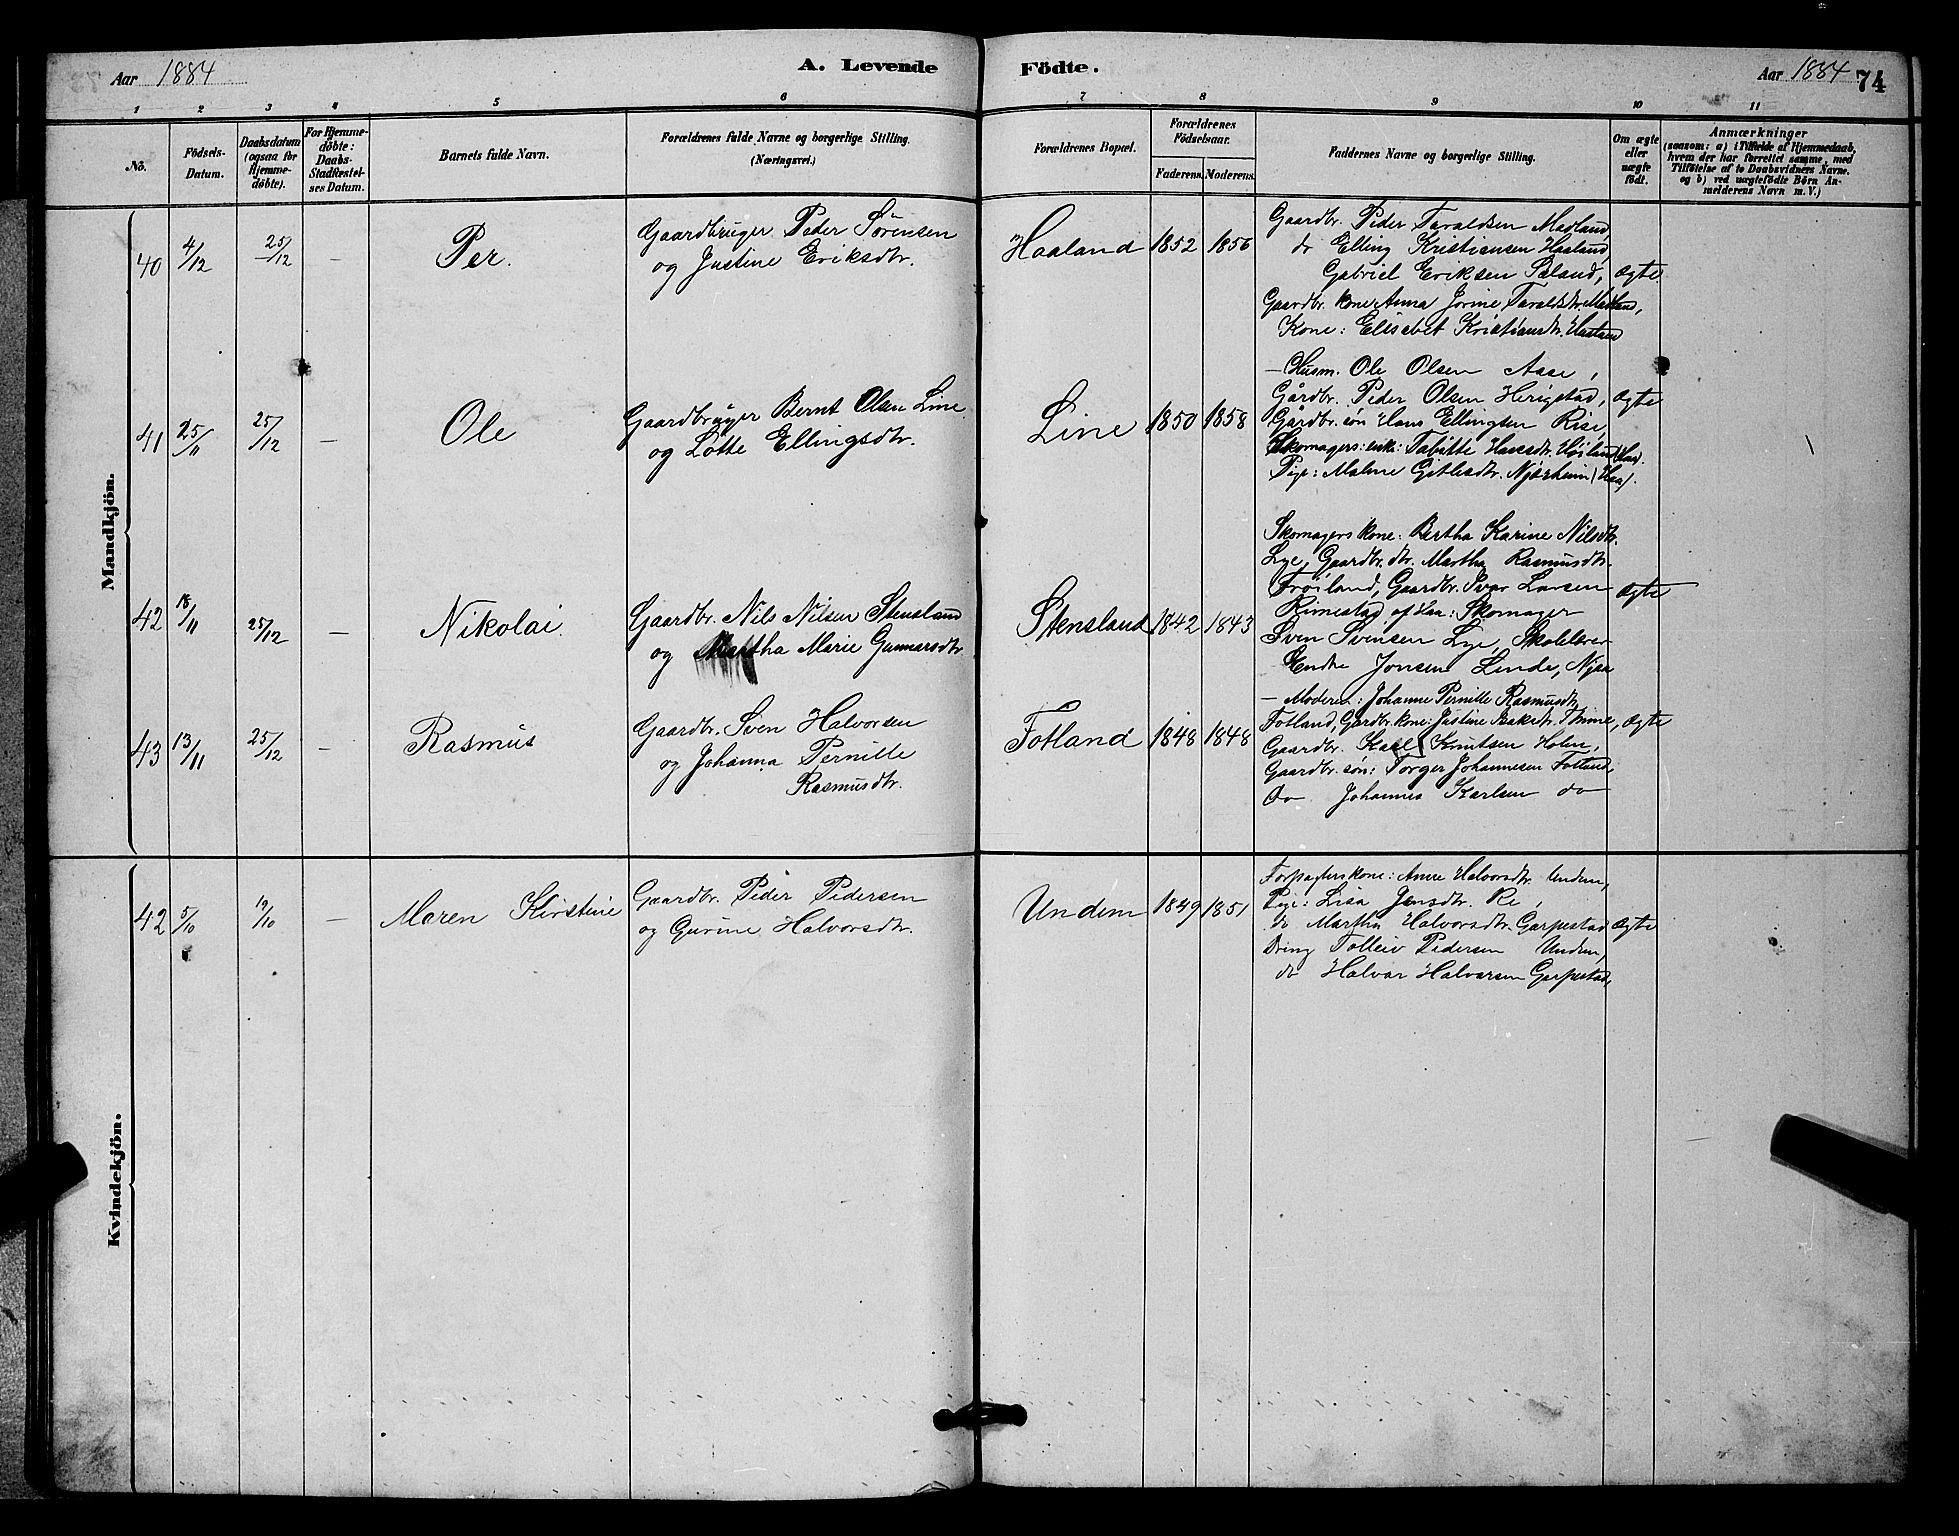 Aar 1884
A. Levende
Födte.
Aar 1884
74
1 2 3 4 5 6 7 8 9 10 11
No.
Födsels-
Datum.
Daabsdatum
(ogsaa for
Hjemme-
döbte).
For Hjemme-
döbte:
Daabs-
Stadfæstel-
ses Datum.
Barnets fulde Navn.
Forældrenes fulde Navne og borgerlige Stilling.
(Næringsvei.)
Forældrenes Bopæl.
Forældrenes
Födselsaar.
Faderens. Moderens.
Faddernes Navne og borgerlige Stilling.
Om ægte
eller
uægte
födt.
Anmærkninger
(saasom: a) i Tilfælde af Hjemmedaab,
hvem der har forrettet samme, med
Tilföielse af to Daabsvidners Navne.
og b) ved uægtefödte Börn An-
melderens Navn m. V.)
Mandkjön.
40 4/12 25/12 — Per.
Gaardbruger Peder Sørensen
og Justine Eriksdtr.
Haaland 1852 1856
Gaardbr. Peder Taraldsen Madland
do Elling Kristiansen Haaland
Gabriel Eriksen Sæland,
Gaardbr. kone Anna Jorine Taraldsdtr. Madland,
Kone: Elisabet Kristiansdtr. Haaland
ægte.
41 25/11 25/12 — Ole
Gaardbruger Bernt Olsen Line
og Lotte Ellingsdtr.
Line 1850 1858
— Husm. Ole Olsen Aase,
Gårdbr. Peder Olsen Herigstad,
Gårdbr. søn Hans Ellingsen Rise,
Skomagers: enke: Tabitte Hansdtr. Høiland (Haa).
Pige: Malene Gitlesdtr. Njærheim (Haa).
ægte
42 18/11 25/12 — Nikolai.
Gaardbr. Nils Nilsen Stensland
og Martha Marie Gunnarsdtr
Stensland 1842 1843
Skomagers kone: Bertha Karine Nilsdtr.
Lye, Gaardbr. dtr. Martha Rasmusdtr.
Frøiland, Gaardbr. Ivar Larsen
Rimestad af Haa: Skomager
Sven Svensen Lye, Skolelærer
Endre Jonsen Linde, Njaa
ægte
43 13/11 25/12 — Rasmus
Gaardbr. Sven Halvorsen
og Johanna Pernille
Rasmusdtr.
Fotland 1848 1848
— Moderen: Johanne Pernille Rasmusdtr
Fotland, Gardbr. kone: Justine Bakedtr. Thime,
Gaardbr. Karl Knutsen Holen,
Gaardbr. søn: Torger Johannesen Fotland
do Johannes Karlsen do
ægte
Kvindekjön.
42 5/10 19/10 — Maren Kirstine
Gaardbr. Peder Pedersen
og Gurine Halvorsdtr.
Undem 1849 1851
Forpagterskone: Anne Halvorsdtr. Undem,
Pige: Lisa Jensdtr. Re,
do Martha Halvorsdtr. Garpestad
Dreng Tolleiv Pedersen Undem,
do Halvar Halvarsen Garpestad,
ægte